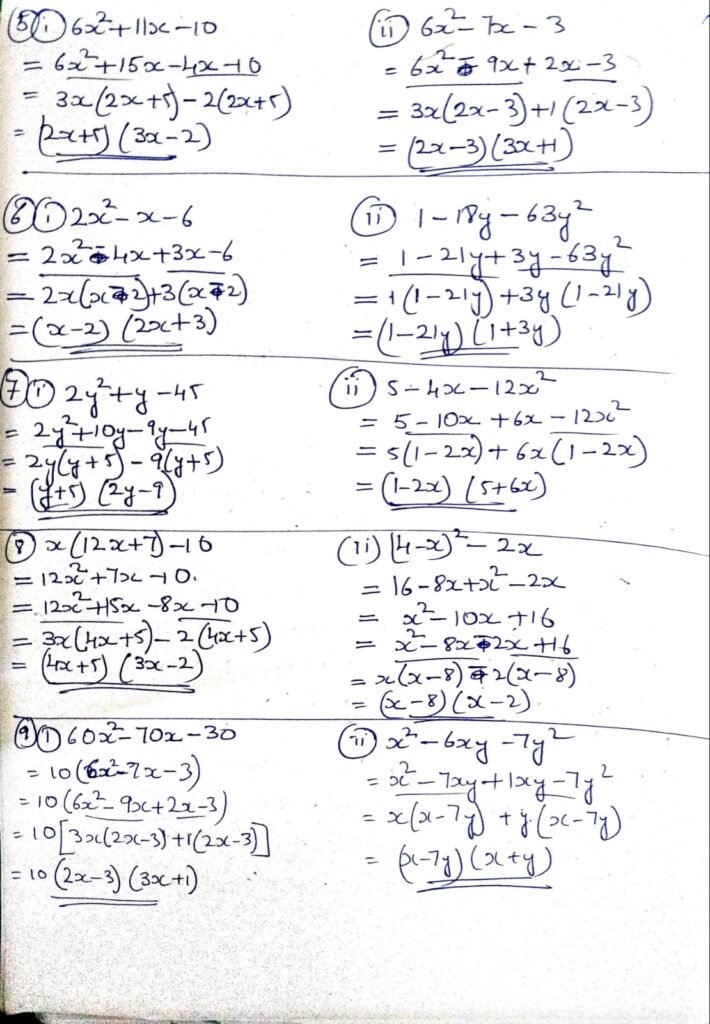 5 i 6x² + 11x - 10
= 6x² + 15x - 4x - 10
= 3x(2x+5) - 2(2x+5)
= (2x+5) (3x-2)
ii 6x² - 7x - 3
= 6x² - 9x + 2x - 3
= 3x(2x-3) + 1(2x-3)
= (2x-3) (3x+1)
6 i 2x² - x - 6
= 2x² - 4x + 3x - 6
= 2x(x-2) + 3(x-2)
= (x-2) (2x+3)
ii 1 - 18y - 63y²
= 1 - 21y + 3y - 63y²
= 1(1-21y) + 3y(1-21y)
= (1-21y) (1+3y)
7 i 2y² + y - 45
= 2y² + 10y - 9y - 45
= 2y(y+5) - 9(y+5)
= (y+5) (2y-9)
ii 5 - 4x - 12x²
= 5 - 10x + 6x - 12x²
= 5(1-2x) + 6x(1-2x)
= (1-2x) (5+6x)
8 x(12x+7) - 10
= 12x² + 7x - 10.
= 12x² + 15x - 8x - 10
= 3x(4x+5) - 2(4x+5)
= (4x+5) (3x-2)
(ii) (4-x)² - 2x
= 16 - 8x + x² - 2x
= x² - 10x + 16
= x² - 8x - 2x + 16
= x(x-8) - 2(x-8)
= (x-8) (x-2)
9 i 60x² - 70x - 30
= 10(6x² - 7x - 3)
= 10(6x² - 9x + 2x - 3)
= 10[3x(2x-3) + 1(2x-3)]
= 10 (2x-3) (3x+1)
ii x² - 6xy - 7y²
= x² - 7xy + 1xy - 7y²
= x(x-7y) + y(x-7y)
= (x-7y) (x+y)